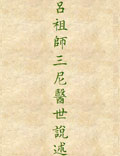 呂祖師三尼醫世說述